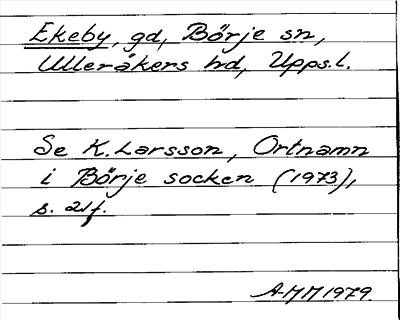 Ekeby, gd, Börje sn,
Ulleråkers hd, Upps.l.
Se K. Larsson, Ortnamn
i Börje socken (1973),
s. 21f.
AMM 1979.